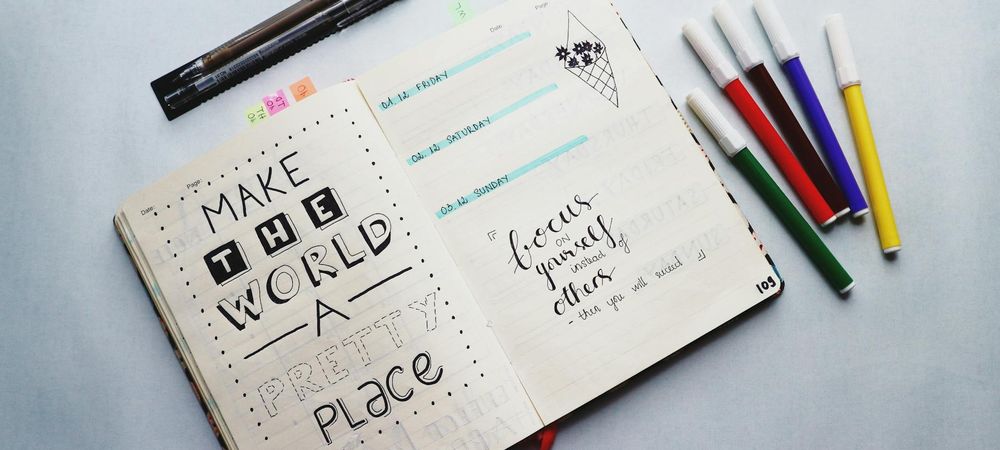 Date:
Page:
MAKE
THE
WORLD
A
PRETTY
PLACE
Date:
Page:
01. 12 FRIDAY
02. 12 SATURDAY
03. 12 SUNDAY
focus
on
yourself
instead of
others
- then you will succeed
109